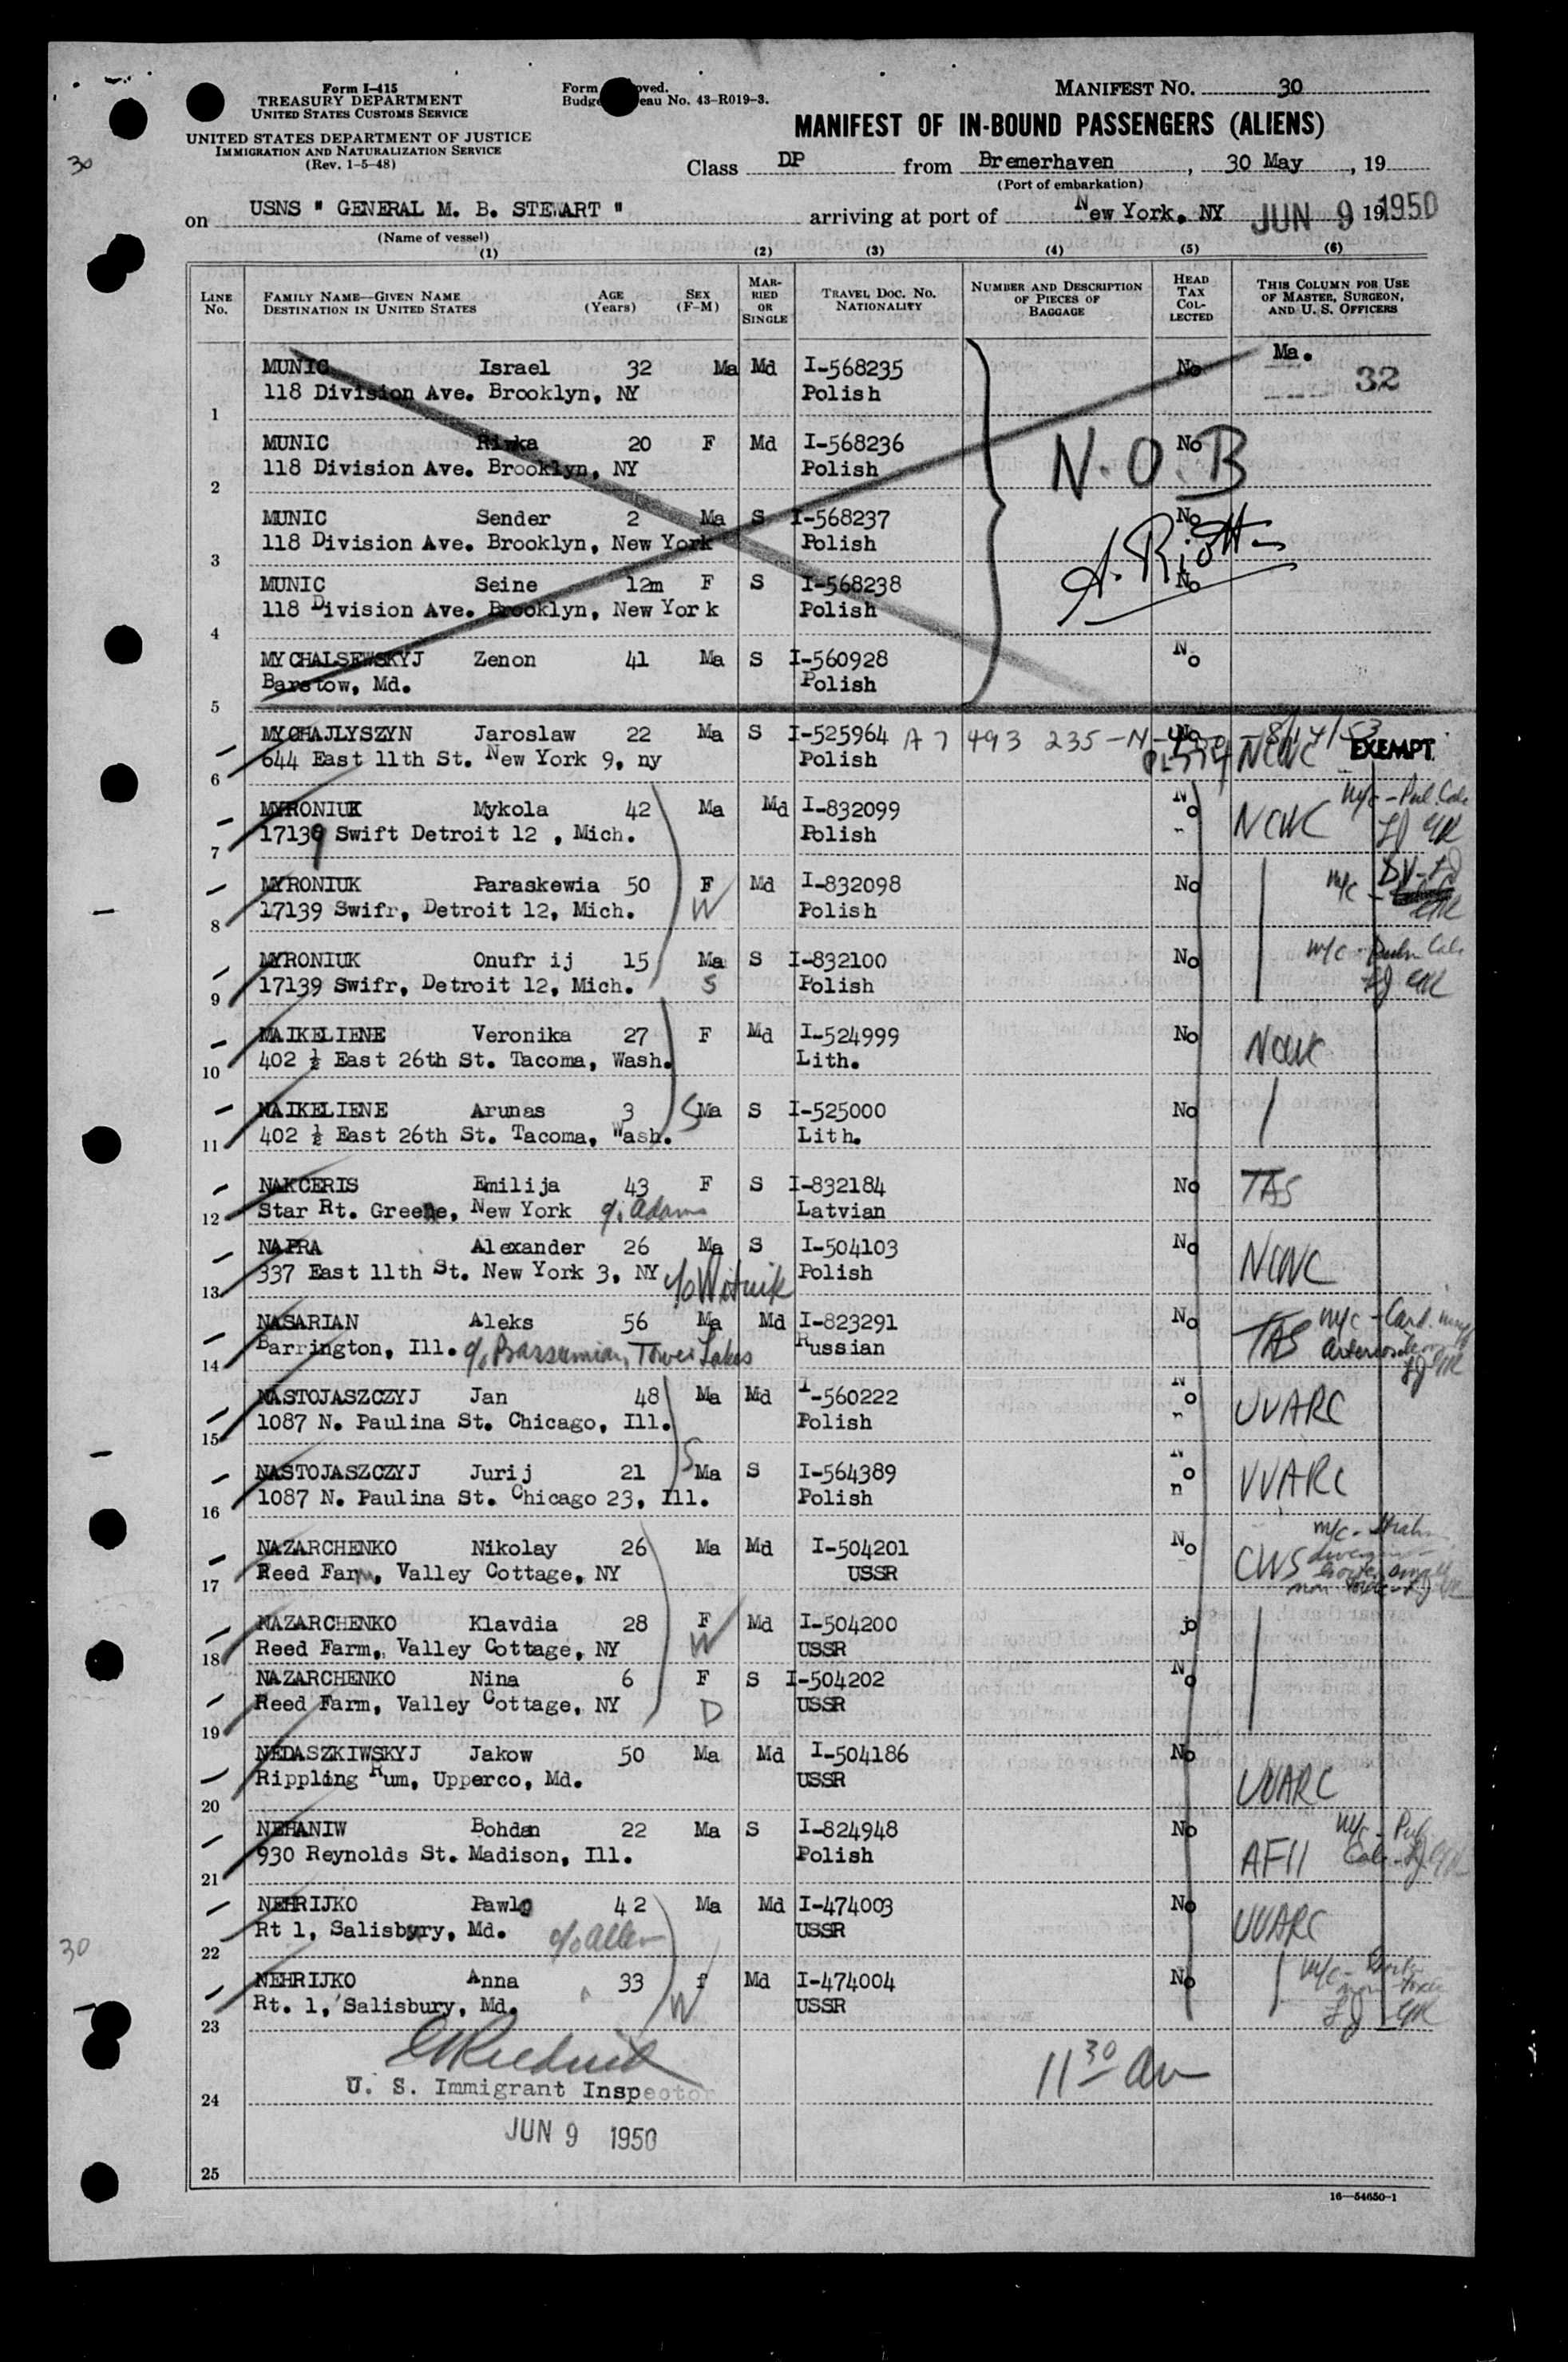 Form I-415
TREASURY DEPARTMENT
UNITED STATES CUSTOMS SERVICE
UNITED STATES DEPARTMENT OF JUSTICE
IMMIGRATION AND NATURALIZATION SERVICE
(Rev. 1-5-48)
30
No. 43-R019-3.
MANIFEST NO. 30
MANIFEST OF IN-BOUND PASSENGERS (ALIENS)
Class DP from Bremerhaven, 30 May, 19
(Port of embarkation)
on USNS " GENERAL M. B. STEWART " arriving at port of New York, NY JUN 9 19 1950
(Name of vessel)
(1) (2) (3) (4) (5) (6)
LINE No. FAMILY NAME—GIVEN NAME DESTINATION IN UNITED STATES AGE (Years) SEX (F-M) MARRIED OR SINGLE TRAVEL DOC. NO. NATIONALITY NUMBER AND DESCRIPTION OF PIECES OF BAGGAGE HEAD TAX COLLECTED THIS COLUMN FOR USE OF MASTER, SURGEON, AND U. S. OFFICERS
MUNIC Israel 32 Ma Md I-568235 No Ma. 32
1 118 Division Ave. Brooklyn, NY Polish
MUNIC Rivka 20 F Md I-568236 No N.O.B
2 118 Division Ave. Brooklyn, NY Polish
MUNIC Sender 2 Ma S I-568237 No
3 118 Division Ave. Brooklyn, New York Polish
MUNIC Seine 12m F S I-568238 No
4 118 Division Ave. Brooklyn, New York Polish
MYCHALSEWSKYJ Zenon 41 Ma S I-560928 No
5 Barstow, Md. Polish
MYCHAJLYSZYN Jaroslaw 22 Ma S I-525964 A7 493 235 No 8/14/53
6 644 East 11th St. New York 9, ny Polish NCWC EXEMPT
MYRONIUK Mykola 42 Ma Md I-832099 No NCWC
7 17139 Swift Detroit 12 , Mich. Polish
MYRONIUK Paraskewia 50 F Md I-832098 No
8 17139 Swifr, Detroit 12, Mich. W Polish
MYRONIUK Onufr ij 15 Ma S I-832100 No
9 17139 Swifr, Detroit 12, Mich. S Polish
MAIKELIENE Veronika 27 F Md I-524999 No NCWC
10 402 ½ East 26th St. Tacoma, Wash. Lith.
NAIKELIENE Arunas 3 S Ma S I-525000 No
11 402 ½ East 26th St. Tacoma, Wash. Lith.
NAKCERIS Emilija 43 F S I-832184 No TAS
12 Star Rt. Greene, New York c/o Adams Latvian
NAPRA Alexander 26 Ma S I-504103 No NCWC
13 337 East 11th St. New York 3, NY Polish
NASARIAN Aleks 56 Ma Md I-823291 No TAS
14 Barrington, Ill. c/o Barsumian, Tower Lakes Russian
NASTOJASZCZYJ Jan 48 Ma Md I-560222 No UUARC
15 1087 N. Paulina St. Chicago, Ill. Polish
NASTOJASZCZYJ Jurij 21 S Ma S I-564389 No UUARC
16 1087 N. Paulina St. Chicago 23, Ill. Polish
NAZARCHENKO Nikolay 26 Ma Md I-504201 No CWS
17 Reed Farm, Valley Cottage, NY USSR
NAZARCHENKO Klavdia 28 F Md I-504200
18 Reed Farm, Valley Cottage, NY W USSR
NAZARCHENKO Nina 6 F S I-504202 No
19 Reed Farm, Valley Cottage, NY D USSR
NEDASZKIWSKYJ Jakow 50 Ma Md I-504186 No
20 Rippling Rum, Upperco, Md. USSR UUARC
NEHANIW Bohdan 22 Ma S I-824948 No
21 930 Reynolds St. Madison, Ill. Polish AFII
NEHRIJKO Pawlo 42 Ma Md I-474003 No
22 Rt 1, Salisbury, Md. c/o Allen USSR UUARC
30
NEHRIJKO Anna 33 f Md I-474004 No
23 Rt. 1, Salisbury, Md. W USSR
24 U. S. Immigrant Inspector 11 30 am
JUN 9 1950
25
16—54650-1